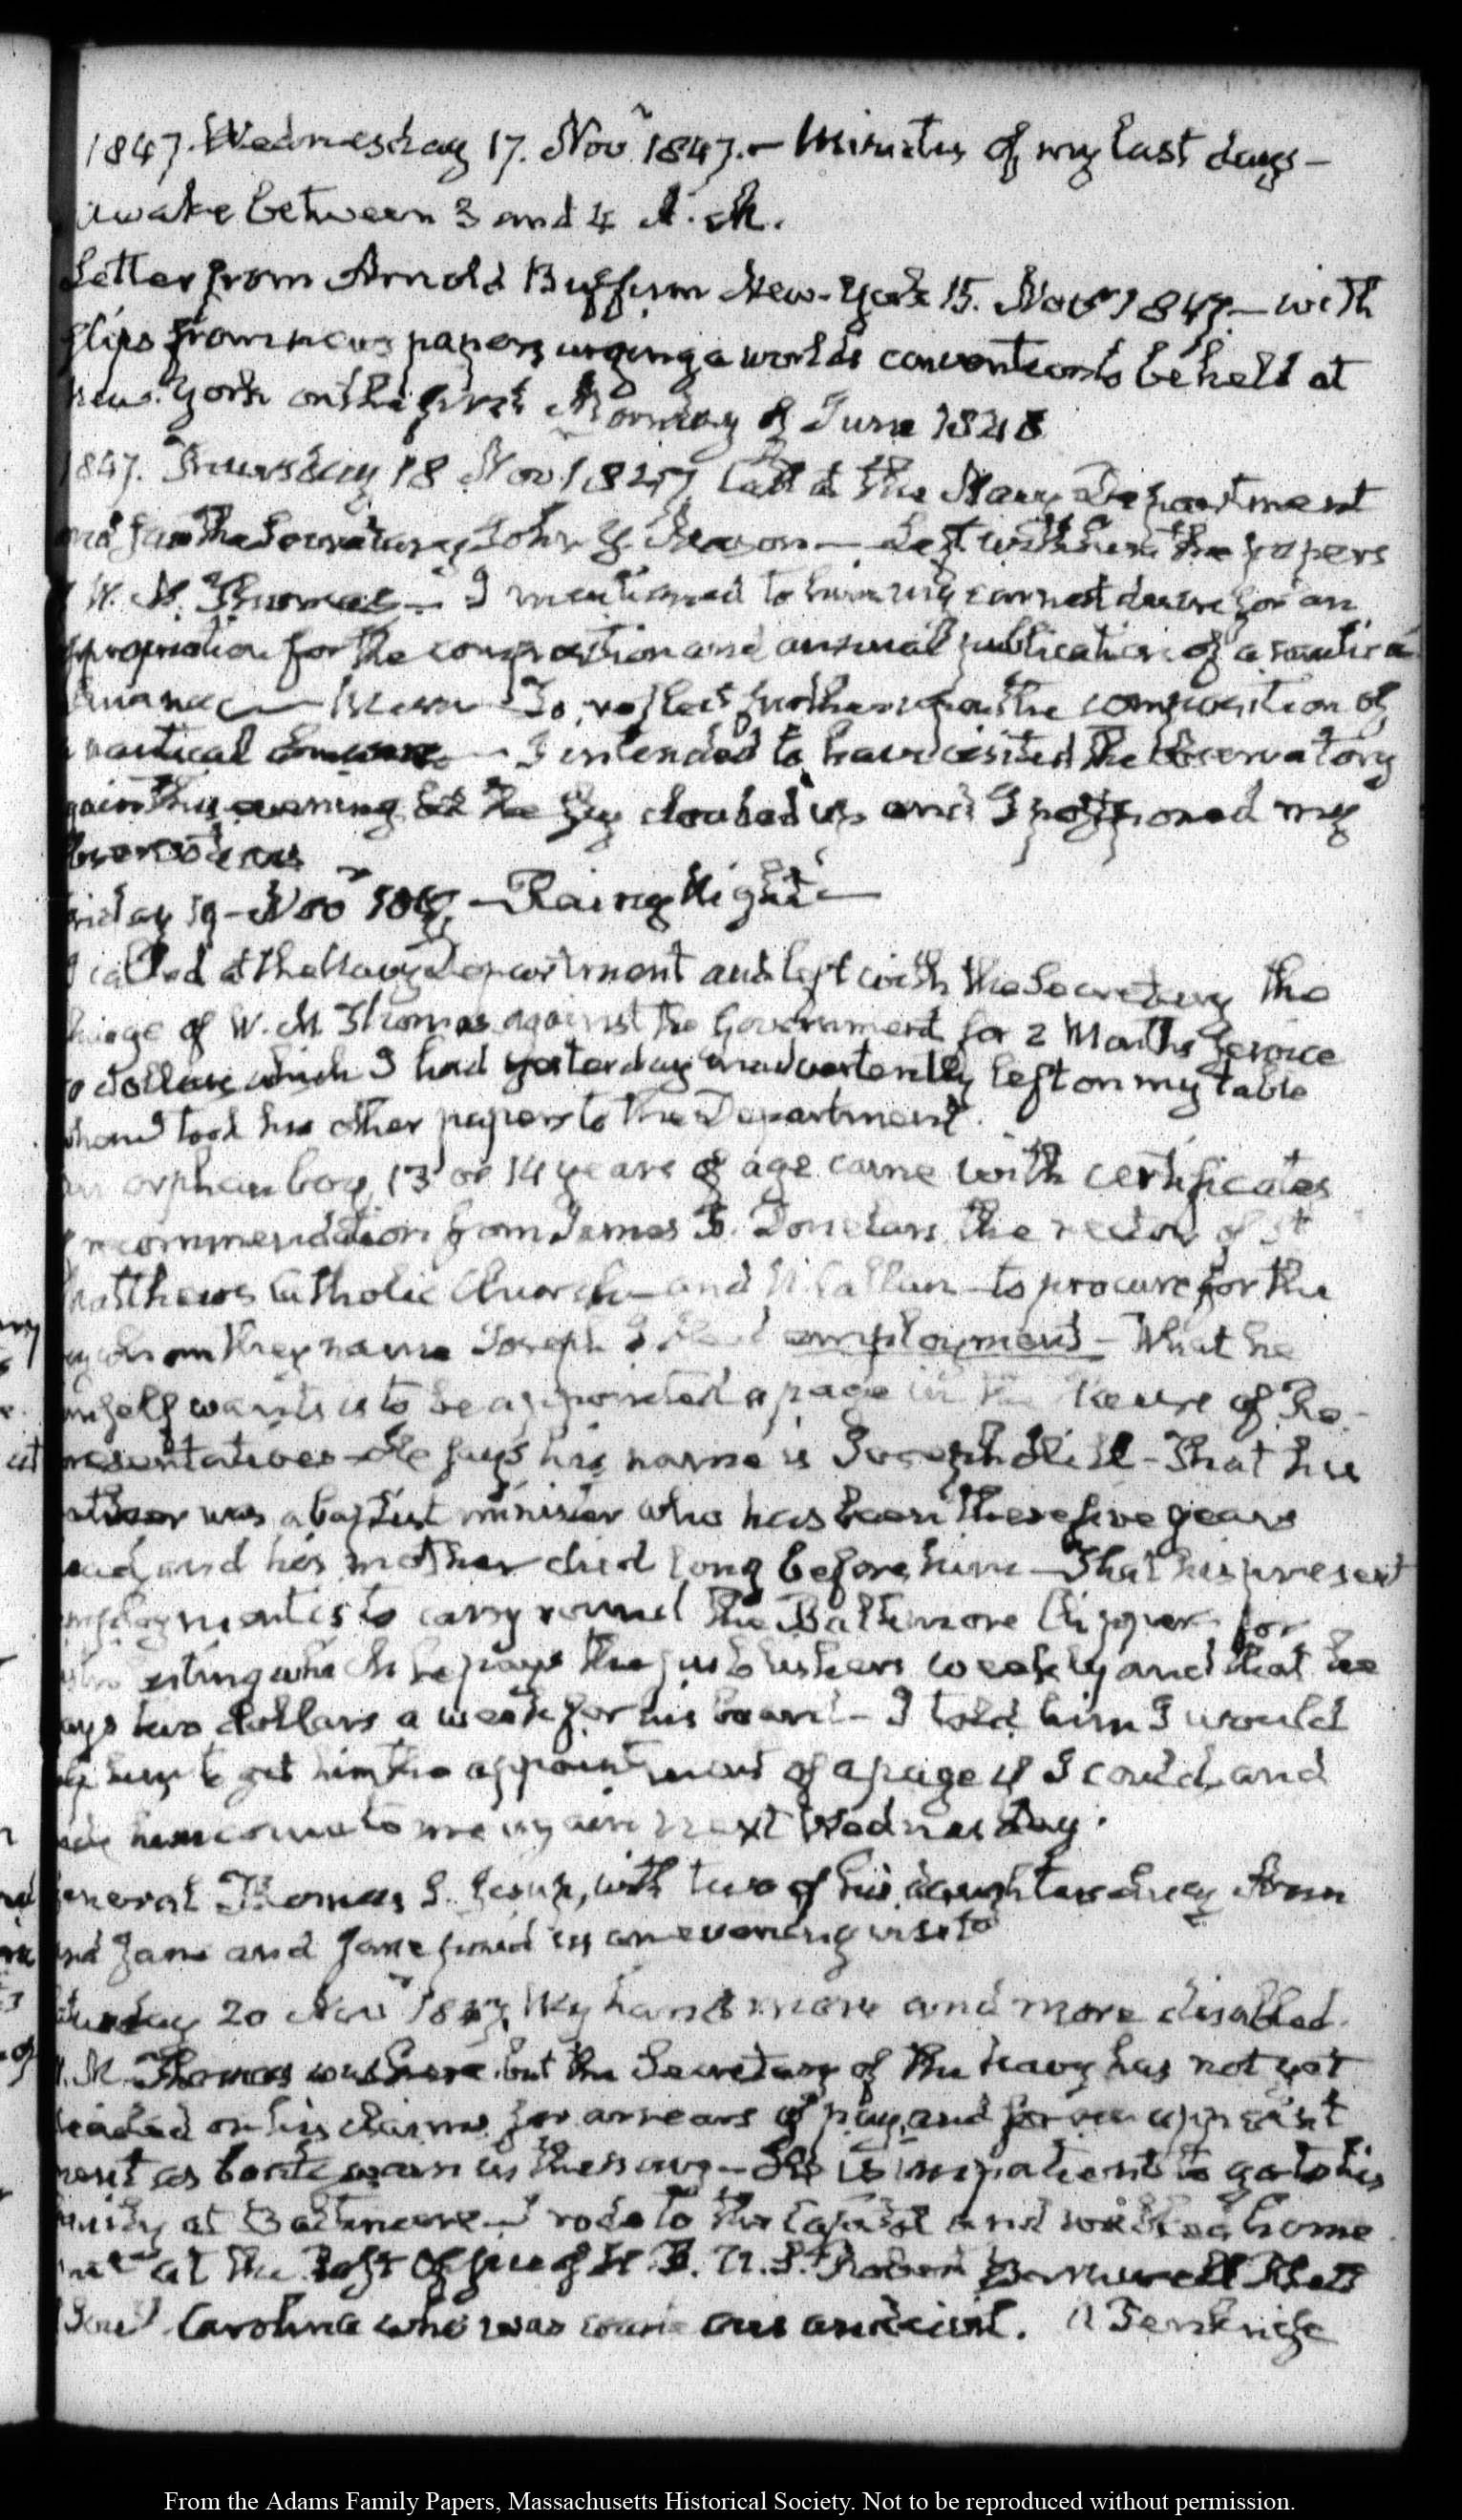 1847. Wednesday 17. Novr 1847. — Minutes of my last days —
awake between 3 and 4 A. M.
Letter from Arnold Buffum New-York 15. Novr 1847. — with
slips from news papers urging a worlds convention to be held at
New-York on the first Monday of June 1848
1847. Thursday 18 Novr 1847 Call at the Navy Department
and saw the Secretary John Y. Mason — Left with him the papers
W. M. Thomas — I mentioned to him my earnest desire for an
appropriation for the composition and annual publication of a nautical
To reflect further upon the composition of
nautical — I intended to have visited the Observatory
again this evening but the sky clouded up and I postponed my
observations
Friday 19 — Novr 1847, — Rainy Night —
I called at the Navy Department and left with the Secretary the
charge of W. M. Thomas against the Government for 2 Months Service
dollars which I had yesterday inadvertently left on my table
when I took his other papers to the Department.
an orphan boy, 13 or 14 years of age came with certificates
recommendation from James B. Donelan the rector of St
Matthews Catholic Church — and N. Callan — to procure for the
boy whom they name Joseph employment — What he
himself wants is to be appointed a page in the House of Re-
presentatives — He says his name is Joseph — That his
father was a baptist minister who has been these five years
dead, and his mother died long before him — That his present
employment is to carry round the Baltimore for
which he pays the publishers weekly and that he
pays two dollars a week for his board — I told him I would
help him to get him the appointment of a page if I could, and
bade him come to me again next Wednesday.
General Thomas S. Jesup, with two of his daughters Lucy Ann
and Jane and Jane paid us an evening visit
Saturday 20 Novr 1847. My hands more and more disabled.
W. M. Thomas was here but the Secretary of the Navy has not yet
decided on his claims for arrears of pay, and for an appoint
ment as boatswain in the navy — He is impatient to go to his
family at Baltimore — I rode to the Capitol and walked home
met at the Post Office of H. R. U. S. Robert Barnwell Rhett
South Carolina who was